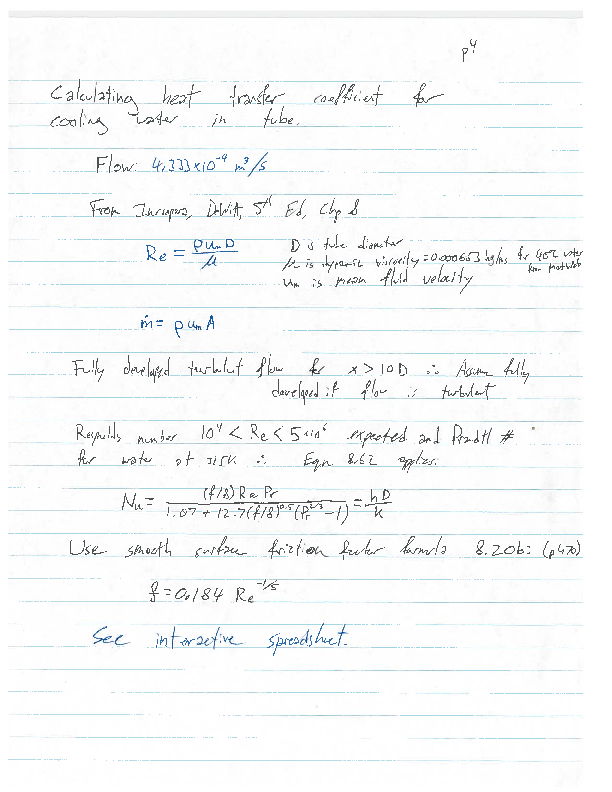 p4
Calculating heat transfer coefficient for
cooling water in tube.
Flow: 4.333x10⁻⁴ m³/s
From Incropera, DeWitt, 5th Ed, Chp 8
Re = ρu_mD / μ
D is tube diameter
μ is dynamic viscosity = 0.000653 kg/ms for 40°C water
from
u_m is mean fluid velocity
ṁ = ρu_mA
Fully developed turbulent flow for x > 10D ∴ Assume fully
developed if flow is turbulent
Reynolds number 10⁴ < Re < 5x10⁶ expected and Prandtl #
for water at ∴ Eqn 8.62 applies:
Nu = (f/8) Re Pr / 1.07 + 12.7(f/8)^0.5 (Pr^2/3 - 1) = hD / k
Use smooth surface friction factor formula 8.20b: (p470)
= 0.184 Re^-1/5
See interactive spreadsheet.